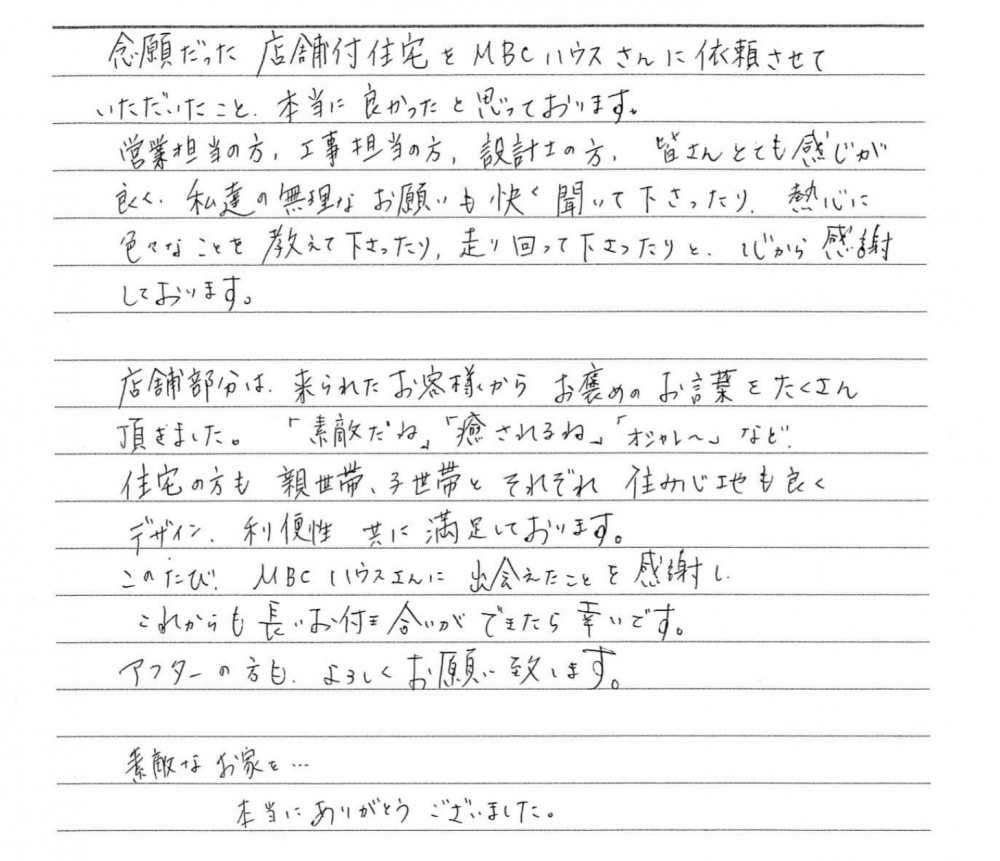 念願だった 店舗付住宅を MBCハウスさんに依頼させて
いただいたこと、本当に良かったと思っております。
営業担当の方、工事担当の方、設計士の方、皆さんとても感じが
良く、私達の無理なお願いも快く聞いて下さったり、熱心に
色々なことを教えて下さったり、走り回って下さったりと、心から感謝
しております。
店舗部分は、来られたお客様から お褒めのお言葉をたくさん
頂きました。「素敵だね」「癒されるね」「オシャレ〜」など、
住宅の方も 親世帯、子世帯と それぞれ 住み心地も良く
デザイン、利便性 共に 満足しております。
このたび、MBCハウスさんに 出会えたことを感謝し、
これからも長いお付き合いができたら幸いです。
アフターの方も、よろしくお願い致します。
素敵なお家を…
本当にありがとうございました。